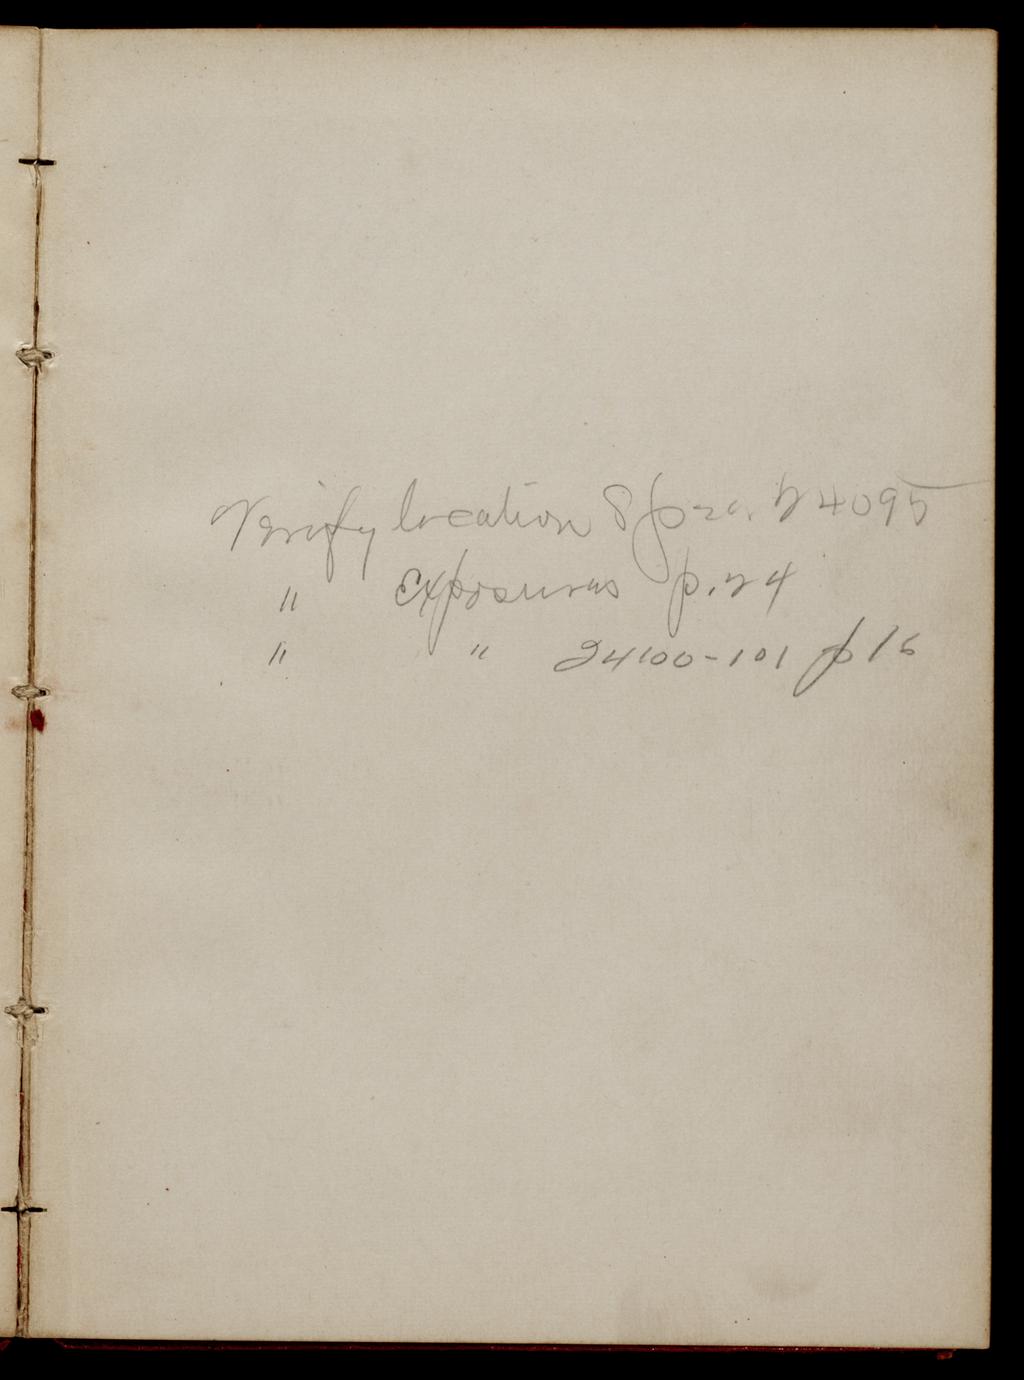 Verify location Spec. 24095
" Exposures p. 24
" " 24100-101 p 16